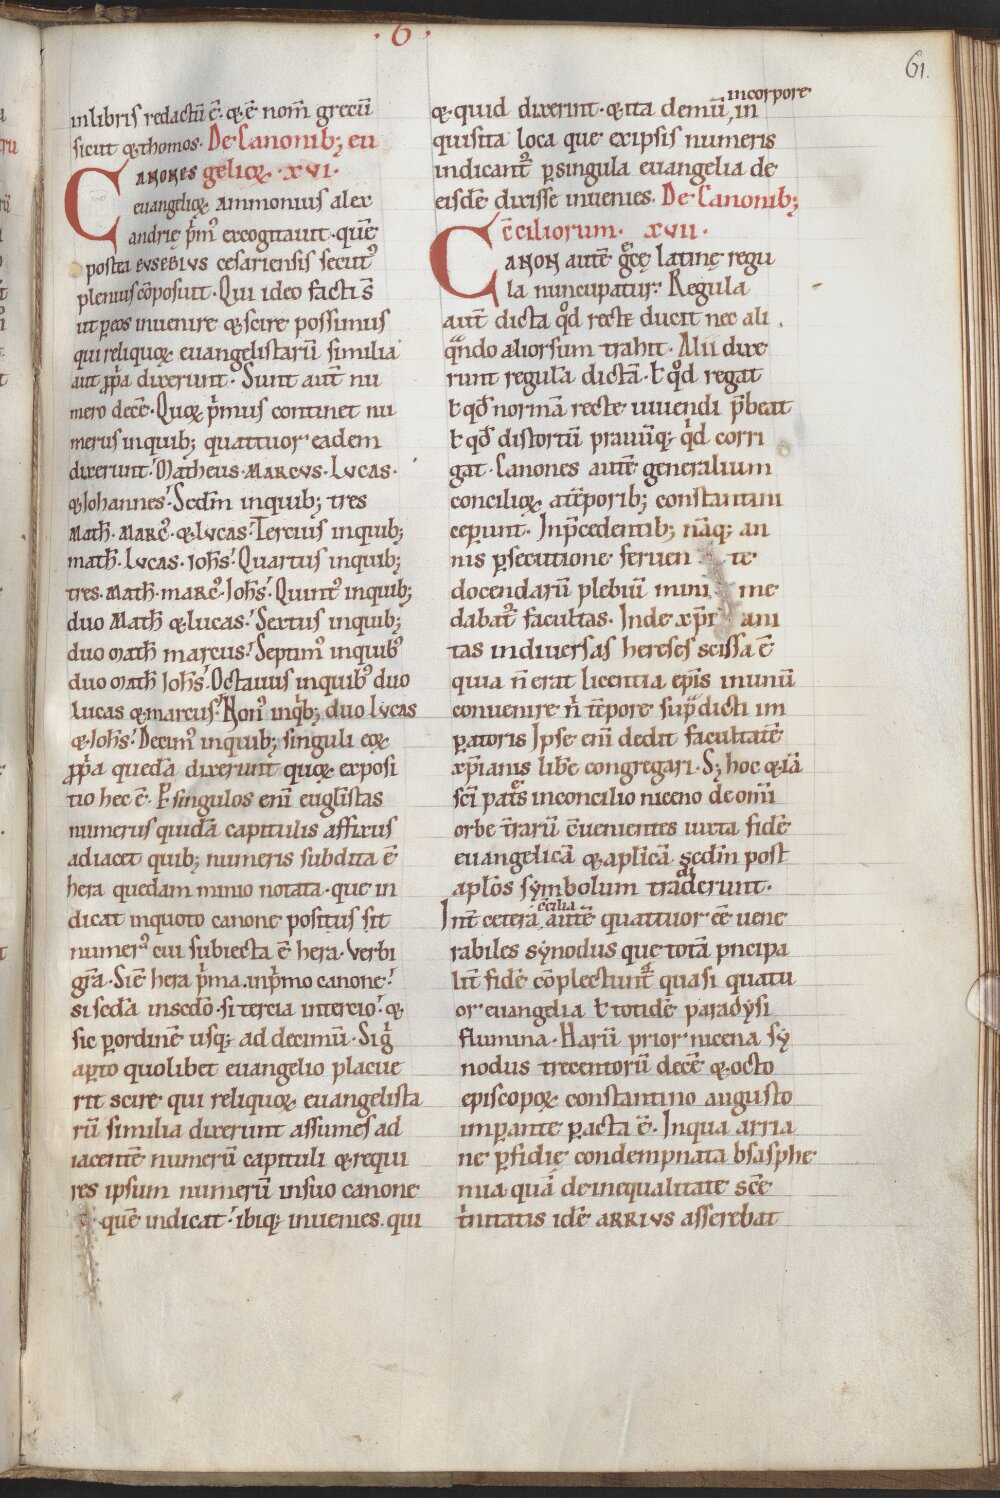 · 6 ·
61.
inlibris redactū ē. ꝙ ē nom̄ grecū
sicut & thomos. De Canonib; eu
CANONES gelioꝝ. XVI.
euangelioꝝ AMMONIUS alex
andrię p̍m᷒ excogitauit. quē
postea EUSEBIUS cesariensis secut᷒
plenius cōposuit. Qui ideo facti s̄
ut ꝑ eos inuenire & scire possimus
qui reliquoꝝ euangelistarū similia
aut ꝓp̍a dixerunt. Sunt aut̄ nu
mero decē. Quoꝝ p̍mus continet nu
merus inquib; quattuor eadem
dixerunt. Matheus. MARCUS. LUCAS.
& Iohannes. Secd̄m inquib; tres
Math̄. MARC᷒. & LUCAS. Tercius inquib;
math̄. LUCAS. Ioh̄s. Quartus inquib;
tres. Math̄. marc᷒. Ioh̄s. Quint᷒ inquib;
duo Math̄ & lucas. Sextus inquib;
duo Math̄ marcus. Septim᷒ inquib᷒
duo Math̄ Ioh̄s. Octauus inquib᷒ duo
Lucas & marcus. Non᷒ inq̍b; duo Lucas
& Ioh̄s. Decim᷒ inquib; singuli eoꝝ
ꝓp̍a quedā dixerunt quoꝝ exposi
tio hec ē. P singulos eni euglistas
numerus quidā capitulis affixus
adiacet quib; numeris subdita ē
hera quedam minio notata. que in
dicat inquoto canone positus sit
numer᷒ cui subiecta ē hera. Verbi
gr̄a. Si ē hera p̍ma. inp̍mo canone.
si secd̄a insecd̄o. si tercia intercio. &
sic ꝑ ordinē usq; ad decimū. Sig̍
aꝑto quolibet euangelio placue
rit scire qui reliquoꝝ euangelista
rū similia dixerunt assumes ad
iacentē numerū capituli & requi
res ipsum numerū insuo canone
quē indicat. ibiq; inuenies. qui
& quid dixerint. & ita demū incorpore in
quisita loca que exipsis numeris
indicant᷒ ꝑ singula euangelia de
eisdē dixisse inuenies. De Canonib;
c̄ciliorum. XVII.
CANON autē grecę latinę regu
la nuncupatur. Regula
aut̄ dicta qd̄ recte ducit nec ali
qͣndo aliorsum trahit. Alii dixe
runt regulā dictā. ꝉ qd̄ regat
ꝉ qd̄ normā recte uiuendi p̄beat
ꝉ qd̄ distortū prauūq; q̍d corri
gat. Canones autē generalium
concilioꝝ atēporib; constantini
ceperunt. Inp̄cedentib; nāq; an
nis ꝑsecutione feruen te
docendarū plebiū mini me
dabat᷒ facultas. Inde xp̄i ani
tas indiuersas hereses scissa ē
quia n̄ erat licentia ep̄is inunū
conuenire n̄ tēpore supͣdicti im
ꝑatoris Ipse eni dedit facultatē
xp̄ianis libe congregari. S; hoc & iā
sc̄i pat͛s inconcilio niceno de om̄i
orbe t̄rarū c̄uenientes iuxta fidē
euangelicā & apl̄icā. secd̄m post
apl̄os symbolum tradiderunt.
Int̄ cetera c̄cilia autē quattuor ēē uene
rabiles synodus que totā pncipa
lit̄ fidē cōplectunt᷒ quasi quatu
or euangelia ꝉ totidē paradysi
flumina. Harū prior nicena sy
nodus trecentorū decē & octo
episcopoꝝ constantino augusto
imꝑante ꝑacta ē. Inqua arria
ne ꝑfidię condempnata bsasphe
mia quā de inequalitate sc̄e
t̍nitatis idē ARRIUS asserebat